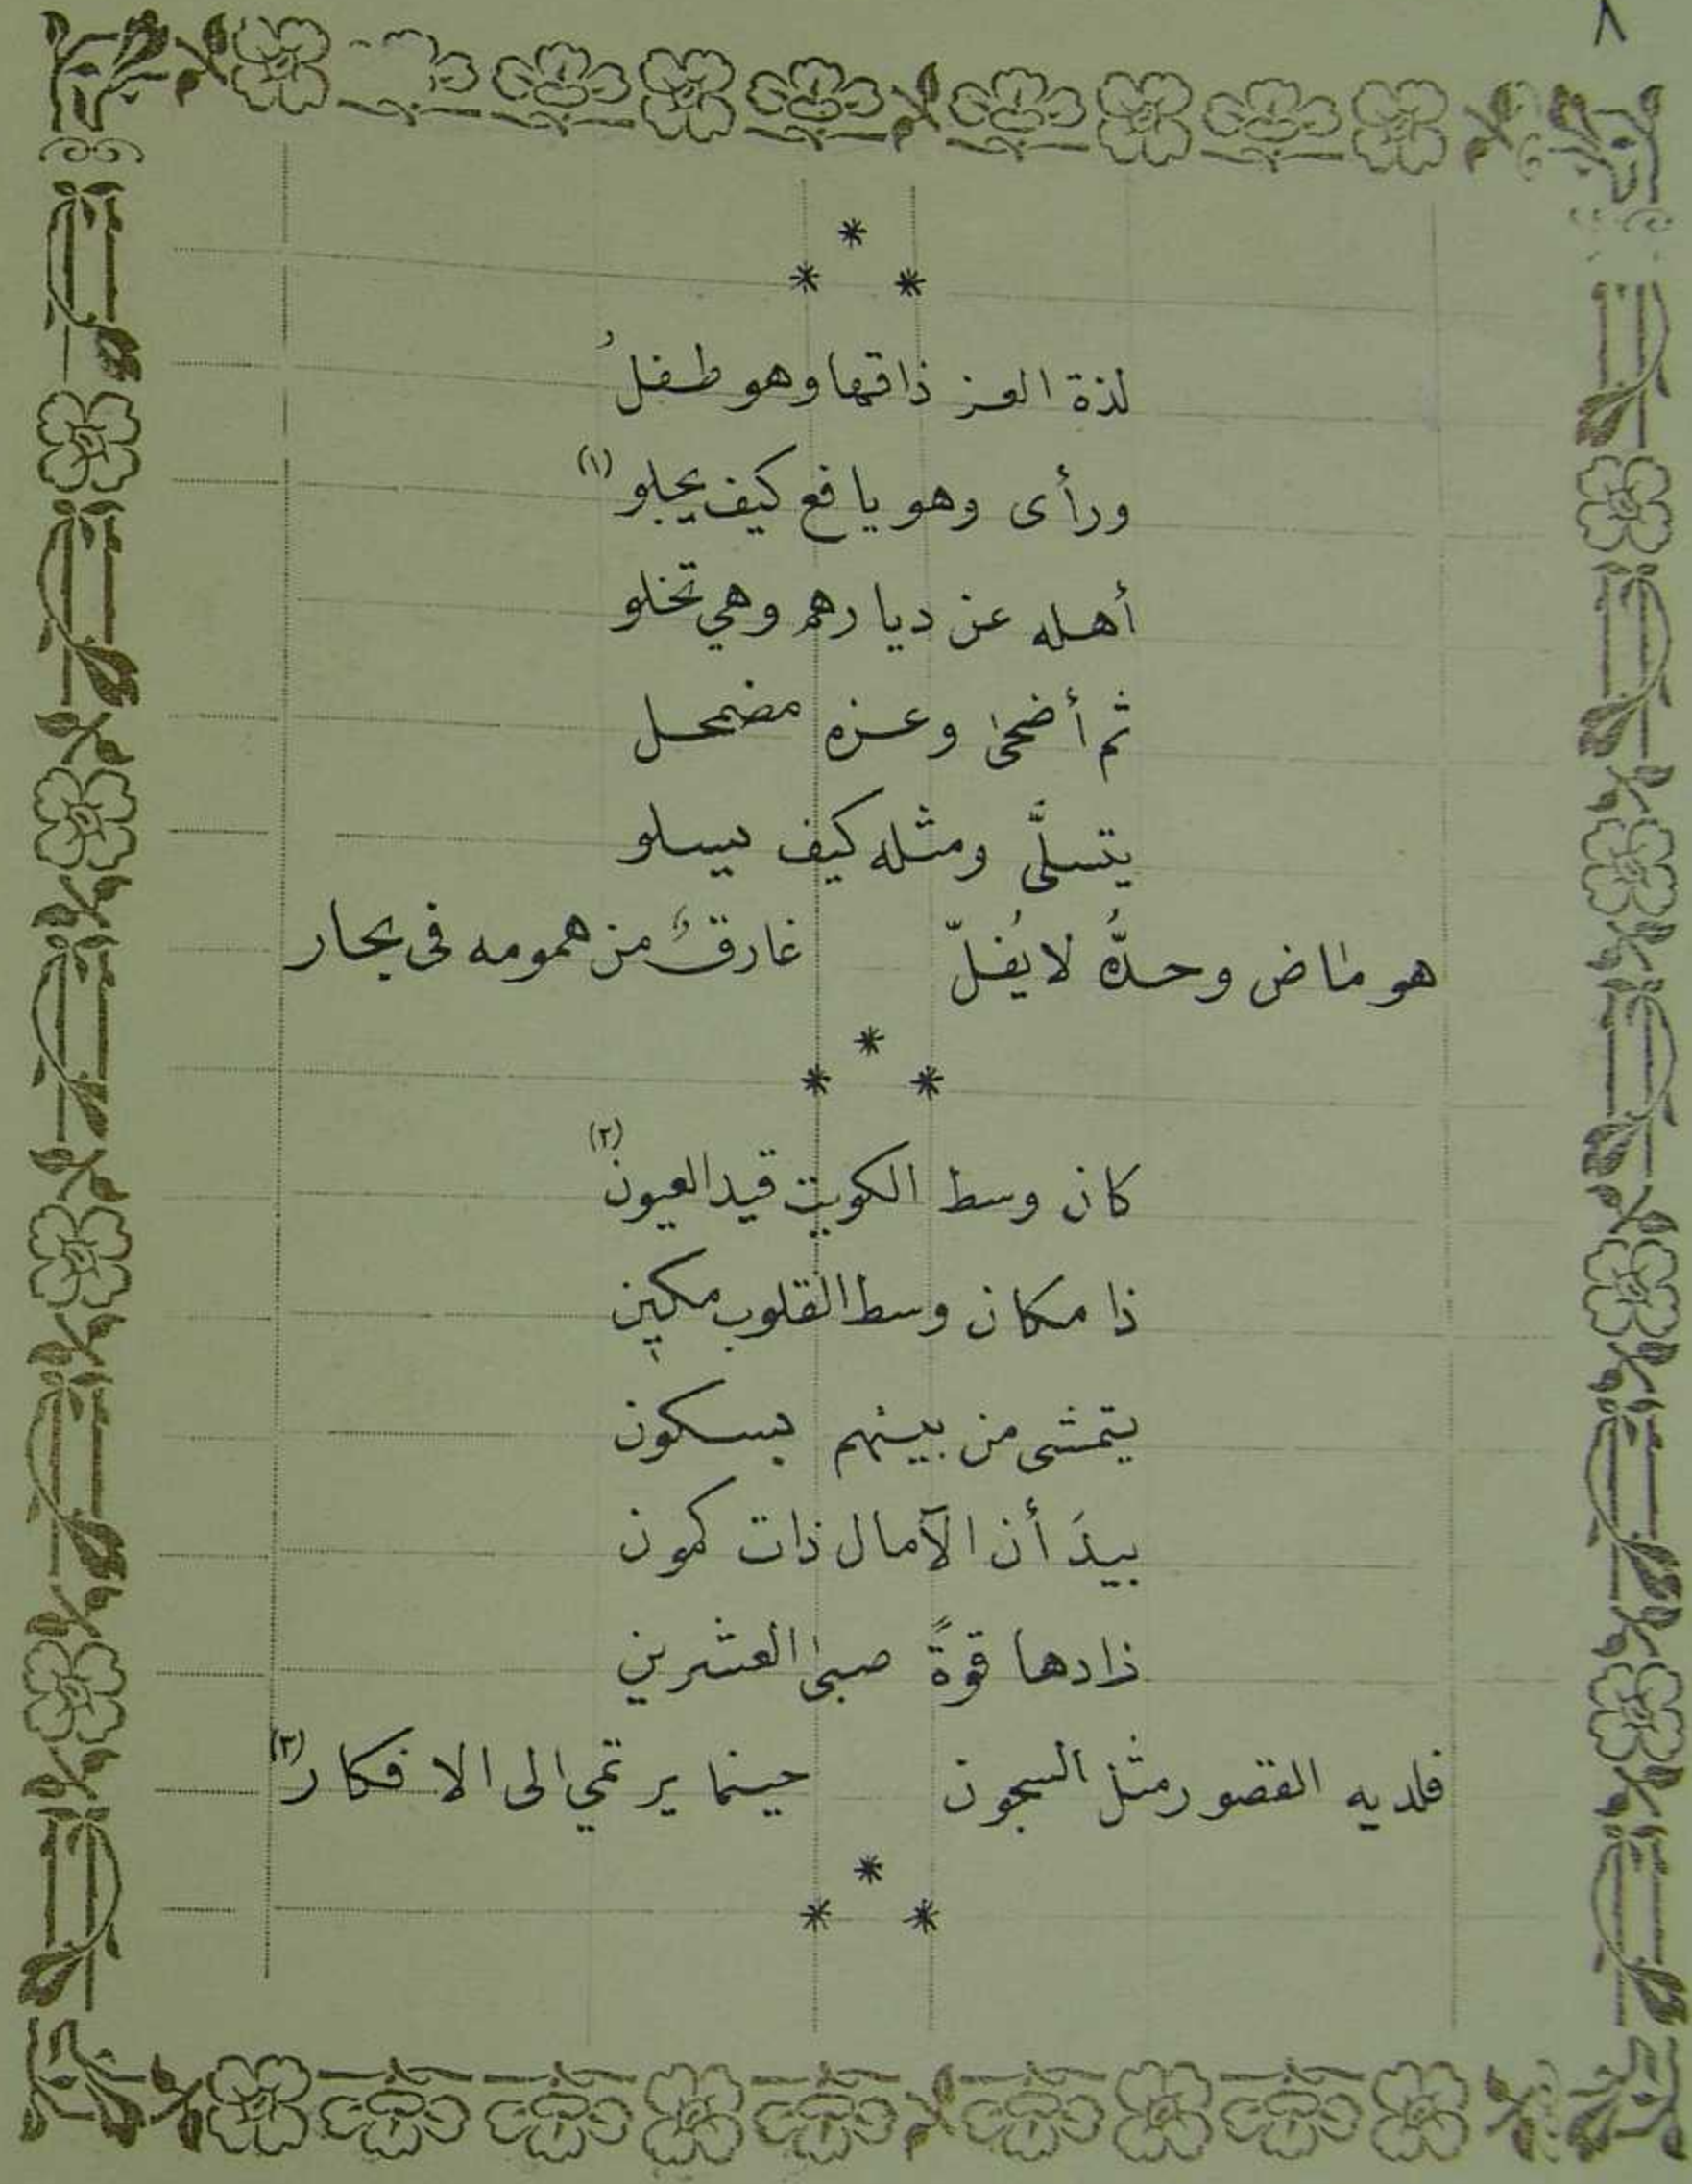 ٨
*
* *
لذة العز ذاقها وهو طفلُ
ورأى وهو يافع كيف يجلو (١)
أهله عن ديارهم وهي تخلو
ثم أضحى وعزه مضمحل
يتسلَّى ومثله كيف يسلو
هو ماض وحدُّه لا يُفلّ غارقٌ من همومه فى بحار
*
* *
كان وسط الكويت قيد العيون (٢)
ذا مكان وسط القلوب مكين
يتمشى من بينهم بسكون
بيدَ أن الآمال ذات كمون
زادها قوةً صبى العشرين
فلديه القصور مثل السجون حينما يرتمي الى الافكار (٣)
*
* *